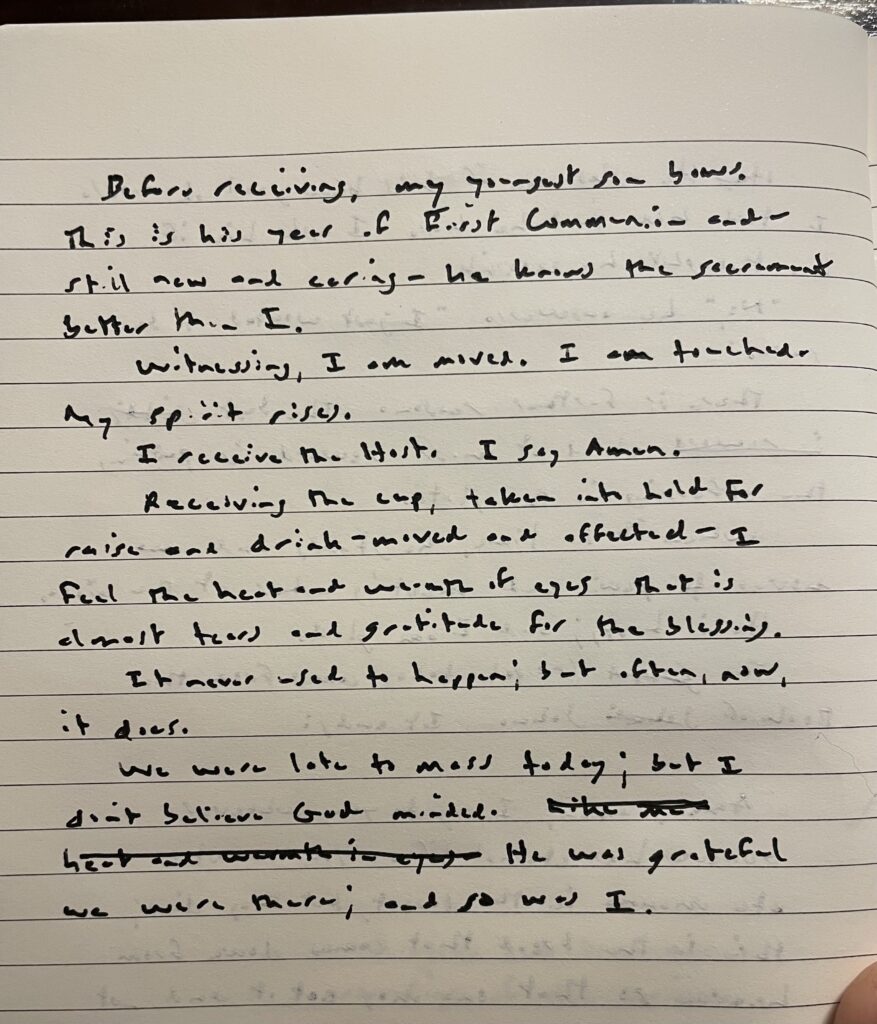 Before receiving, my youngest son bows.
This is his year of First Communion and-
still new and caring- he knows the sacrament
better than I.
Witnessing, I am moved. I am touched.
My spirit rises.
I receive the Host. I say Amen.
Receiving the cup, taken into hold for
raise and drink-moved and affected- I
feel the heat and warmth of eyes that is
almost tears and gratitude for the blessing.
It never used to happen; but often, now,
it does.
We were late to mass today; but I
don't believe God minded. Like me
heat and warmth in eyes He was grateful
we were there; and so was I.